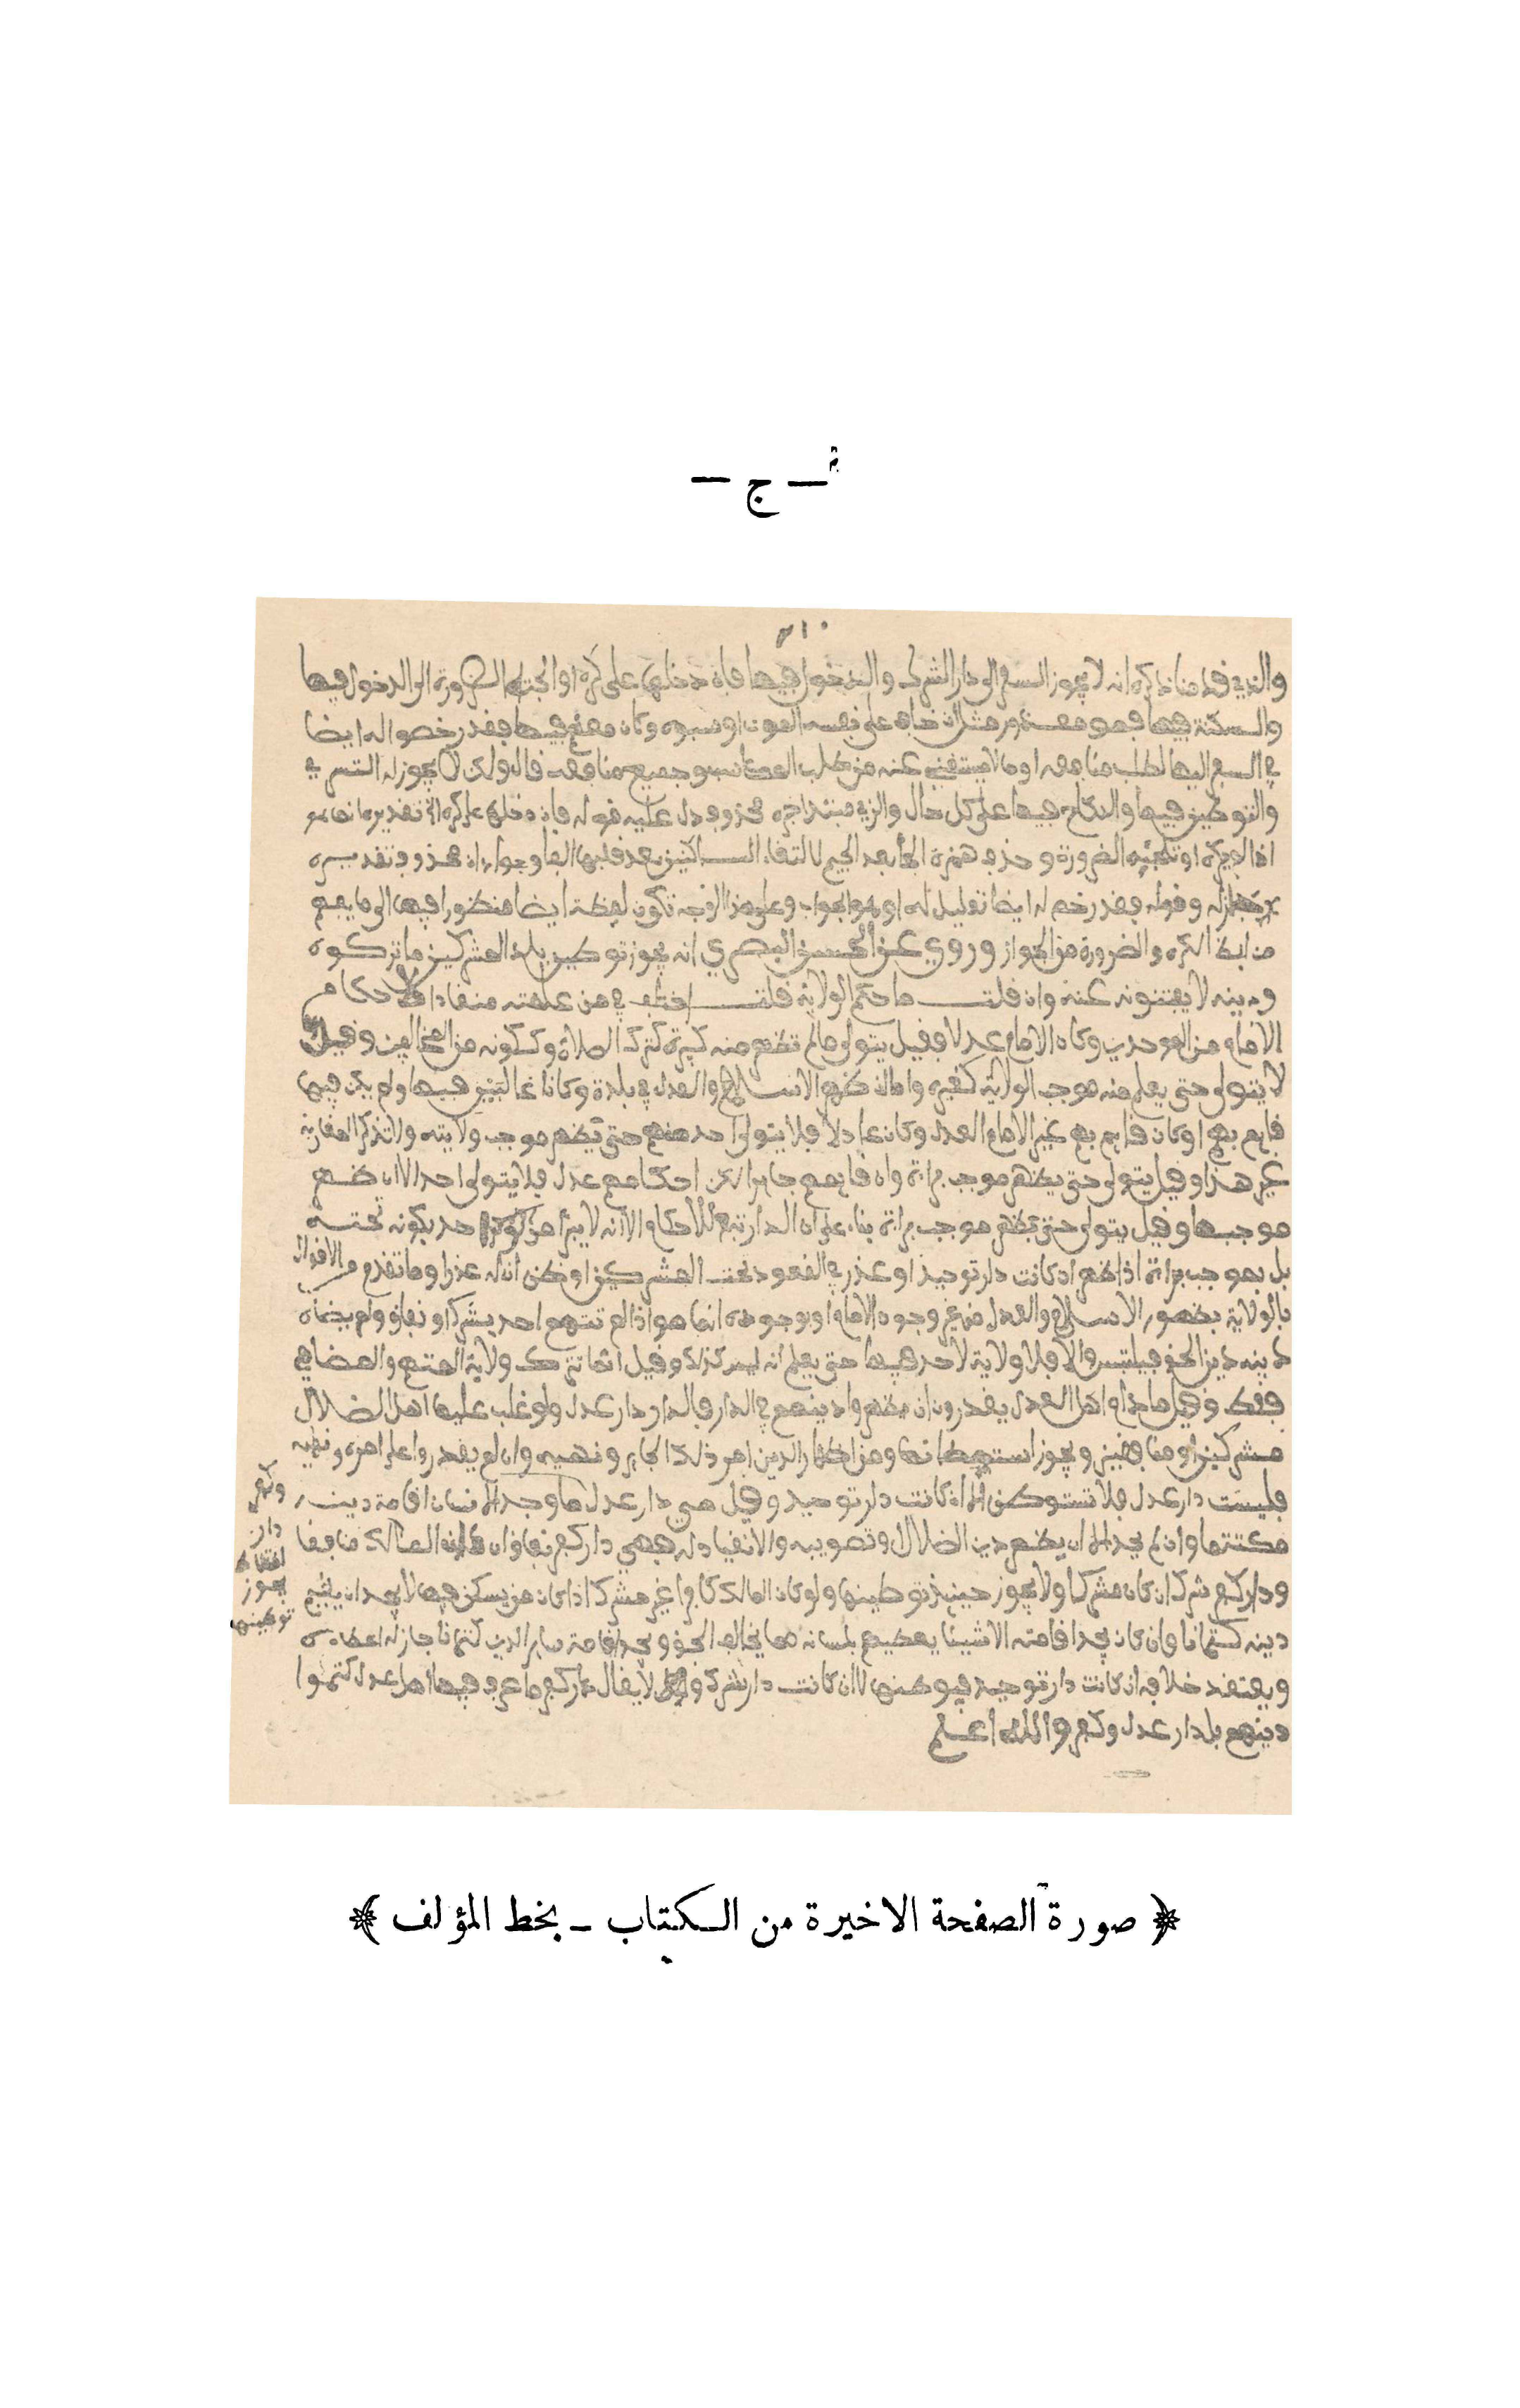 — ج —
والذي قدمنا ذكره انه لا يجوز السفر الى دار الشرك والدخول فيها فان دخلها على كره او الجئته الضرورة الى الدخول فيها
والسكنة فيها فهو معذور مثل ان خاف على نفسه الموت او سبوه وكان معهم فيها فقد رخصوا له ايضا
في السفر اليها لطلب منافعه او ما لا يستغني عنه من طلب المعاش وجميع منافعه قال ولكن لا يجوز له التسري
والتوطين فيها والنكاح فيها على كل حال والذي مبتدا خبره محذوف دل عليه قوله فان دخلها على كره
اذا لم يكره او تلجئه الضرورة وحذف همزة الجأ بعد الجيم لالتقاء الساكنين بعد قلبها الفا وجواب ان محذوف تقديره
جاز له وقوله فقد رخص له ايضا تعليل له او هو الجواب وعلى هذا الوجه تكون لفظة ايضا منظورا فيها الى ما يفهم
من لفظ الكره والضرورة من الجواز وروي عن الحسن البصري انه يجوز توطين بلد المشركين ما تركوه
ودينه لا يفتنونه عنه وان قلت ما حكم الولاية قلت اختلف في من علمته منقادا لاحكام
الامام من الموحدين وكان الامام عدلا فقيل يتولى ما لم تظهر منه كبيرة كترك الصلاة وككونه من المخالفين وقيل
لا يتولى حتى يعلم منه موجب الولاية كغيره واما ان ظهر الاسلام والعدل في بلدة وكانا غالبين فيها ولم يكن فيها
قايم بهم او كان قايم بهم غير الامام العدل وكان عادلا فلا يتولى احد منهم حتى يظهر موجب ولايته ولا تذكر المغاربة
غير هذا وقيل يتولى حتى يظهر موجب براءة وان قايمهم جايرا لكن احكامهم عدل فلا يتولى احد الا ان ظهر
موجبها وقيل يتولى حتى يظهر موجب براءة بناء على ان الدار تبع للاحكام الا انه لا يبرأ من احد بكونه تحته
بل بموجب براءة اذا ظهر اذ كانت دار توحيد او عذر في القعود تحت المشركين او ظن ان له عذرا وما تقدم من الاقوال
بالولاية بظهور الاسلام والعدل من غير وجود الامام او بوجوده انما هو اذا لم تتهم احد بشرك او نفاق ولم يضاه
دينه دين الحق فيلتبس والا فلا ولاية لاحد فيها حتى يعلم انه ليس كذلك وقيل انما تترك ولاية المتهم والمضاهي
فقط وقيل ما دام اهل العدل يقدرون ان يظهروا دينهم في الدار فالدار دار عدل ولو غلب عليها اهل الضلال
مشركين او منافقين ويجوز استيطانها ومن اظهار الدين امر ذلك الجاير ونهيه وان لم يقدروا على امره ونهيه
فليست دار عدل فلا تستوطن الا ان كانت دار توحيد وقيل هي دار عدل ما وجد الانسان اقامة دينه
مكتتما وان لم يجد الا ان يظهر دين الضلال وتصويبه والانقياد له فهي دار كفر نفاق ان كان المالك منافقا
ودار كفر شرك ان كان مشركا ولا يجوز حينئذ توطينها ولو كان المالك كافرا غير مشرك اذا كان من يسكن فيها لا يجد ان يقيم
دينه كتمانا وان كان يجد اقامته الا شيئا يعطيهم بلسانه مما يخالف الحق ويجد اقامة ساير الدين كتمانا جاز له اعطاءه
ويعتقد خلافه ان كانت دار توحيد فيوطنها لا ان كانت دار شرك لا يقال دار كفر ما عرف فيها اهل عدل كتموا
دينهم بل دار عدل وكفر والله اعلم
وكفر
دار
يجوز
توطينها
﴿ صورة الصفحة الاخيرة من الكتاب – بخط المؤلف ﴾